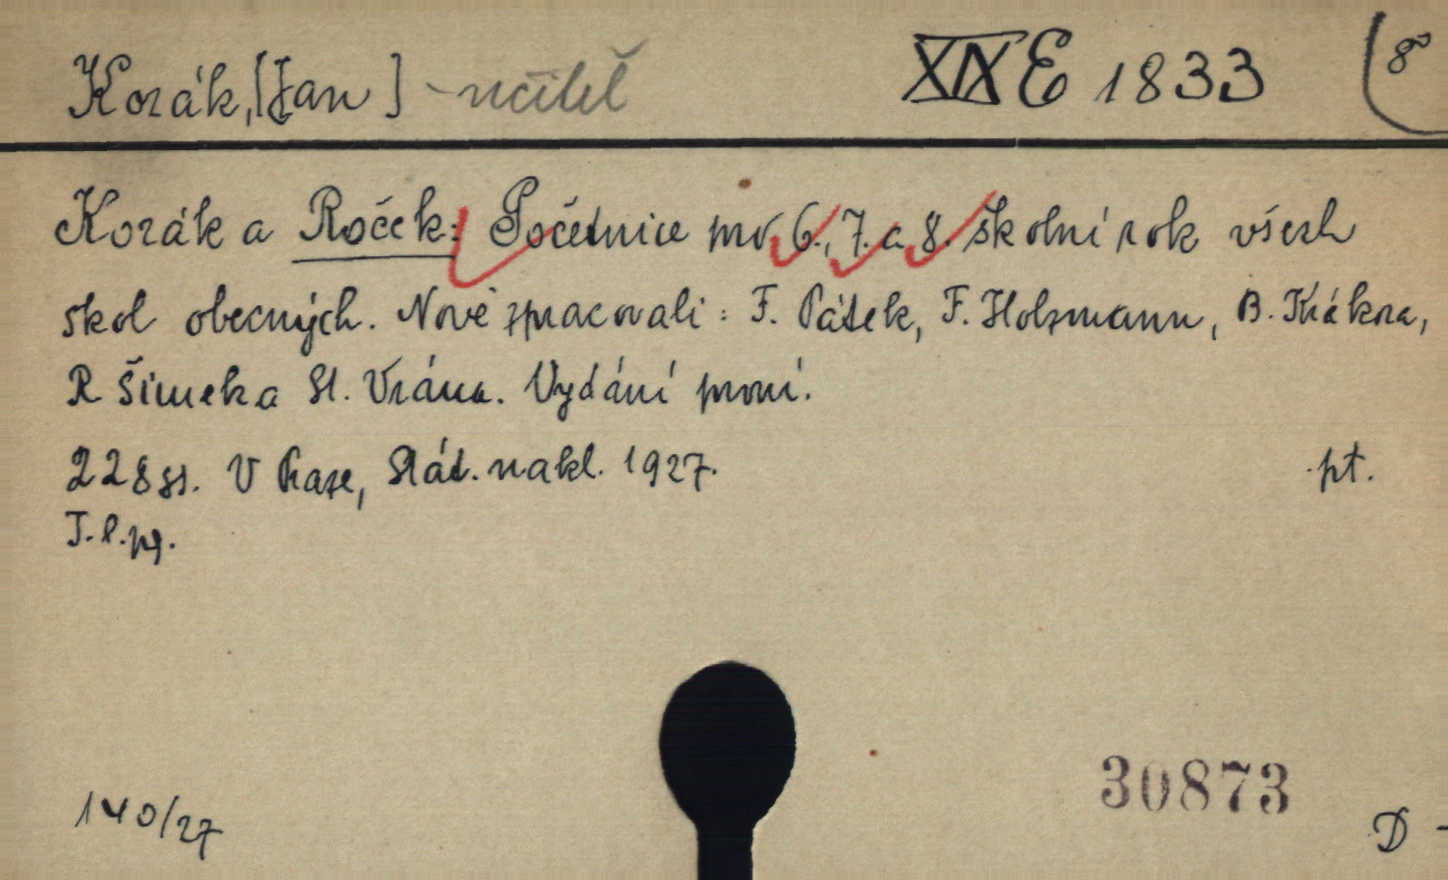 Kozák, [Jan] - učitel XIX E 1833 (8°
Kozák a Roček: Početnice pro 6., 7. a 8. školní rok všech
škol obecných. Nově zpracovali: F. Pátek, F. Holzmann, B. Krákora,
R Šimek a St. Vrána. Vydání první.
228 ss. V Praze, Stát. nakl. 1927. pt.
T. l. pg.
140/27 30873 D -